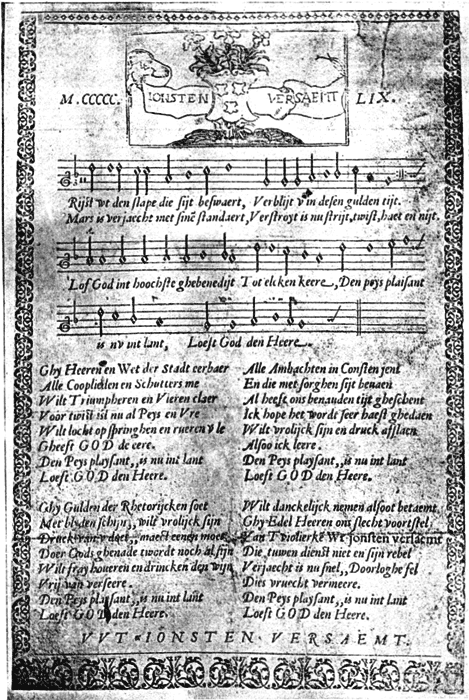 M.CCCCC. IONSTEN VERSAEMT LIX.
Rijst wt den slape die sijt beswaert, Verblijt v in desen gulden tijt.
Mars is verjaecht met sinē standaert, Verstroyt is nu strijt, twist, haet en nijt.
Lof God int hoochste ghebenedijt Tot elcken keere, Den peys plaisant
is nv int lant, Loeft God den Heere.
Ghy Heeren en Wet der Stadt eerbaer
Alle Cooplieden en Schutters me
Wilt Triumpheren en Vieren claer
Voor twist ist nu al Peys en Vre
Wilt locht op springhen en rueren v le
Gheeft GOD de eere.
Den Peys playsant,, is nu int lant
Loeft GOD den Heere.
Ghy Gulden der Rhetorijcken soet
Met blyden schijn,, wilt vrolijck sijn
Druck van v doet,, maect eenen moet
Doer Gods ghenade twordt noch al sijn
Wilt fray houeren en drincken den wijn
Vrij van verseere.
Den Peys playsant,, is nu int lant
Loeft GOD den Heere.
Alle Ambachten in Consten jent
En die met sorghen sijt beuaen
Al heeft ons benauden tijt gheschent
Ick hope het wordt seer haest ghedaen
Wilt vrolijck sijn en druck afslaen
Alsoo ick leere.
Den Peys playsant,, is nu int lant
Loeft GOD den Heere.
Wilt danckelijck nemen alsoot betaemt
Ghy Edel Heeren ons slecht voorstel
Van Tviolierken Wt jonsten versaemt
Die, tuwen dienst niet en sijn rebel
Verjaecht is nu snel,, Doorloghe fel
Dies vruecht vermeere.
Den Peys playsant,, is nu int lant
Loeft GOD den Heere.
VVT IONSTEN VERSAEMT.